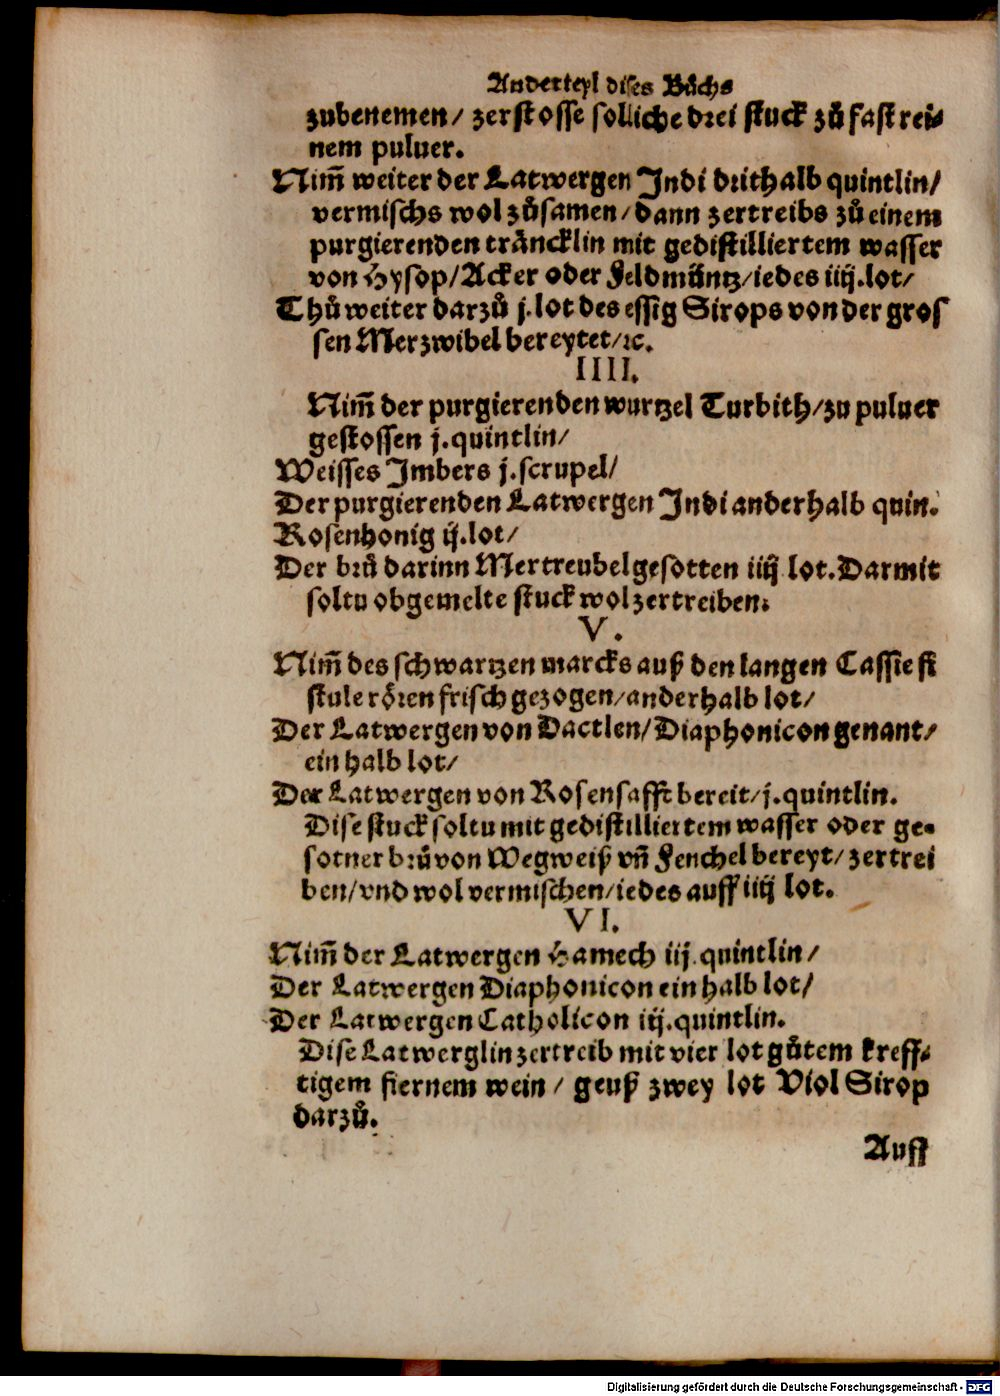 Anderteyl dises Bůchs
zubenemen/ zerstosse solliche drei stuck zů fast rei-
nem puluer.
Nim̃ weiter der Latwergen Indi drithalb quintlin/
vermischs wol zůsamen/ dann zertreibs zů einem
purgierenden träncklin mit gedistilliertem wasser
von Hysop/ Acker oder Feldmüntz/ iedes iiij.lot/
Thů weiter darzů j.lot des essig Sirops von der gros
sen Merzwibel bereytet/ ꝛc.
IIII.
Nim̃ der purgierenden wurtzel Turbith/ zu puluer
gestossen j.quintlin/
Weisses Imbers j.scrupel/
Der purgierenden Latwergen Indi anderhalb quin.
Rosenhonig ij.lot/
Der brů darinn Mertreubel gesotten iiij lot. Darmit
soltu obgemelte stuck wol zertreiben.
V.
Nim̃ des schwartzen marcks auß den langen Cassie fi
stule rören frisch gezogen/ anderhalb lot/
Der Latwergen von Dactlen/ Diaphonicon genant/
ein halb lot/
Der Latwergen von Rosensafft bereit/ j.quintlin.
Dise stuck soltu mit gedistilliertem wasser oder ge-
sotner brů von Wegweiß vñ Fenchel bereyt/ zertrei
ben/ vnd wol vermischen/ iedes auff iiij lot.
VI.
Nim̃ der Latwergen Hamech iij.quintlin/
Der Latwergen Diaphonicon ein halb lot/
Der Latwergen Catholicon iij.quintlin.
Dise Latwerglin zertreib mit vier lot gůtem kreff-
tigem fiernem wein/ geuß zwey lot Viol Sirop
darzů.
Auff
Digitalisierung gefördert durch die Deutsche Forschungsgemeinschaft - DFG